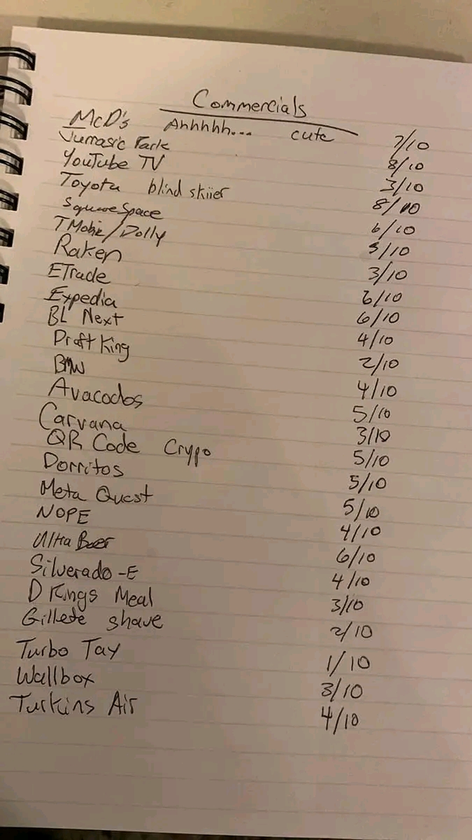 Commercials
McD's Ahhhhh... cute 7/10
Jurrasic Park 8/10
YouTube TV 3/10
Toyota blind skiier 8/10
SquareSpace 6/10
TMobie/Dolly 5/10
Raken 3/10
ETrade 6/10
Expedia 6/10
BL Next 4/10
Draft King 2/10
BMW 4/10
Avacados 5/10
Carvana 3/10
QR Code Crypo 5/10
Dorritos 5/10
Meta Quest 5/10
NOPE 4/10
Ultra Beer 6/10
Silverado-E 4/10
D Kings Meal 3/10
Gillete shave 2/10
Turbo Tay 1/10
Wallbox 3/10
Turkins Air 4/10